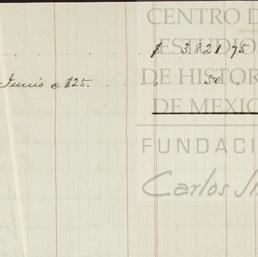 CENTRO D
ESTUDIO
$ 3821 75
DE HISTOR
Junio a $25. " 50.
DE MEXIC
FUNDACI
Carlos Sl